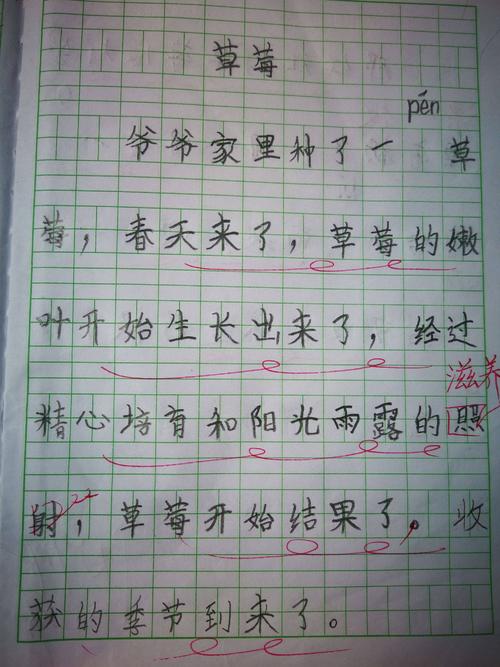 草莓
pén
爷爷家里种了一 草
莓，春天来了，草莓的嫩
叶开始生长出来了，经过
滋养
精心培育和阳光雨露的照
射，草莓开始结果了。收
获的季节到来了。